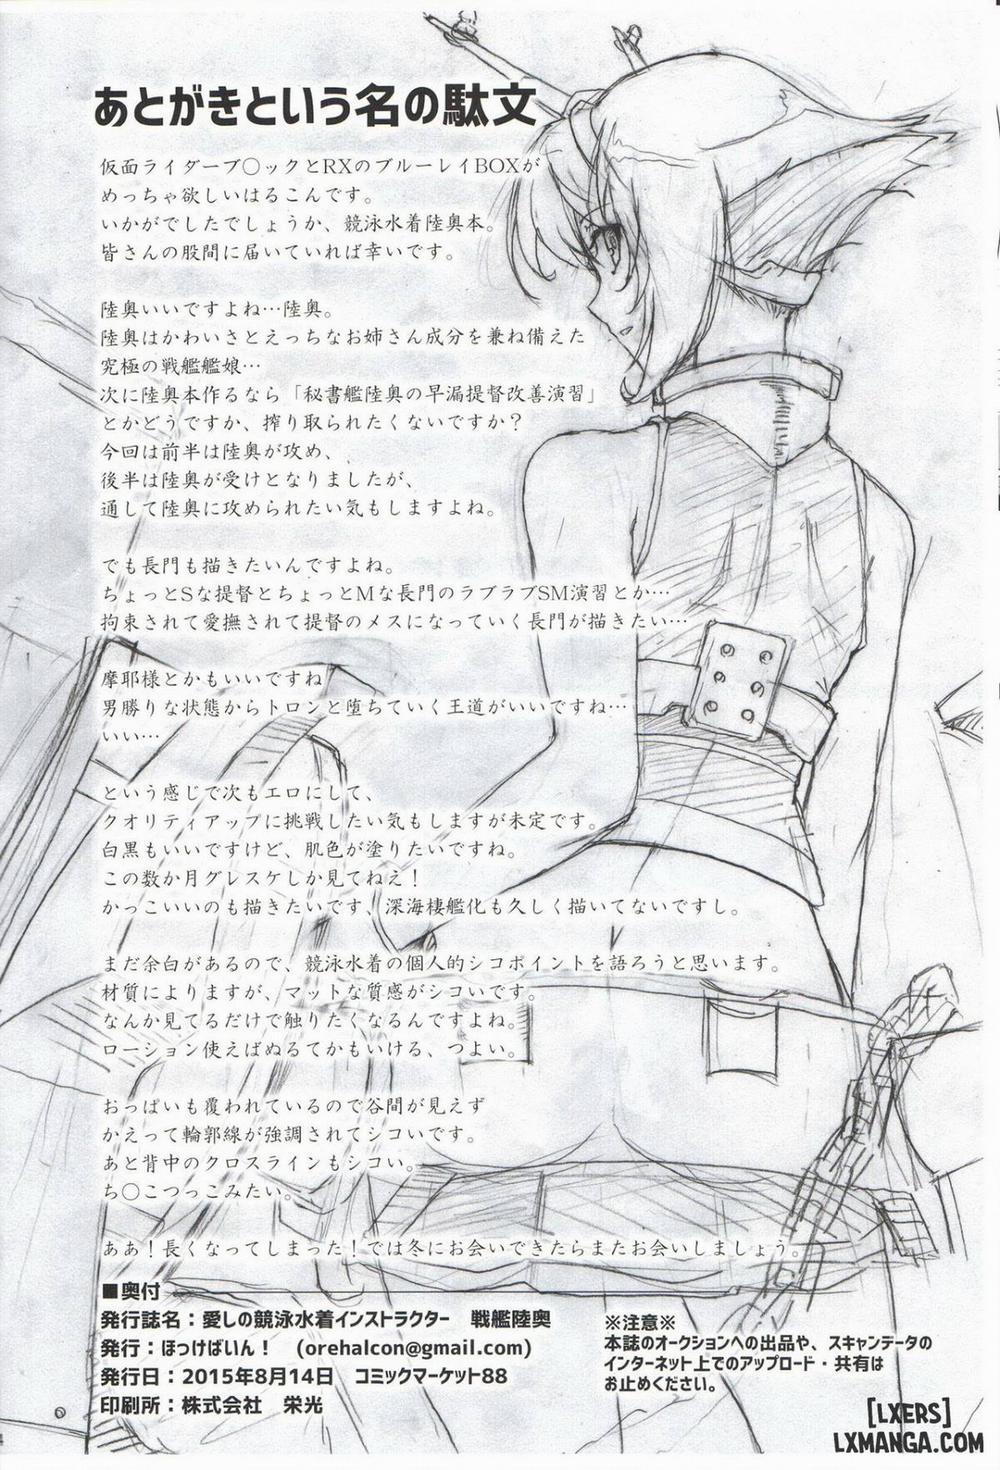 あとがきという名の駄文
仮面ライダーブ〇ックとRXのブルーレイBOXが
めっちゃ欲しいはるこんです。
いかがでしたでしょうか、競泳水着陸奥本。
皆さんの股間に届いていれば幸いです。
陸奥いいですよね…陸奥。
陸奥はかわいさとえっちなお姉さん成分を兼ね備えた
究極の戦艦艦娘…
次に陸奥本作るなら「秘書艦陸奥の早漏提督改善演習」
とかどうですか、搾り取られたくないですか?
今回は前半は陸奥が攻め、
後半は陸奥が受けとなりましたが、
通して陸奥に攻められたい気もしますよね。
でも長門も描きたいんですよね。
ちょっとSな提督とちょっとMな長門のラブラブSM演習とか…
拘束されて愛撫されて提督のメスになっていく長門が描きたい…
摩耶様とかもいいですね
男勝りな状態からトロンと堕ちていく王道がいいですね…
いい…
という感じで次もエロにして、
クオリティアップに挑戦したい気もしますが未定です。
白黒もいいですけど、肌色が塗りたいですね。
この数か月グレスケしか見てねえ!
かっこいいのも描きたいです、深海棲艦化も久しく描いてないですし。
まだ余白があるので、競泳水着の個人的シコポイントを語ろうと思います。
材質によりますが、マットな質感がシコいです。
なんか見てるだけで触りたくなるんですよね。
ローション使えばぬるてかもいける、つよい。
おっぱいも覆われているので谷間が見えず
かえって輪郭線が強調されてシコいです。
あと背中のクロスラインもシコい。
ち〇こつっこみたい。
ああ!長くなってしまった!では冬にお会いできたらまたお会いしましょう。
■奥付
発行誌名:愛しの競泳水着インストラクター 戦艦陸奥
発行:ほっけばいん! (orehalcon@gmail.com)
発行日:2015年8月14日 コミックマーケット88
印刷所:株式会社 栄光
※注意※
本誌のオークションへの出品や、スキャンデータの
インターネット上でのアップロード・共有は
お止めください。
[LXERS]
LXMANGA.COM